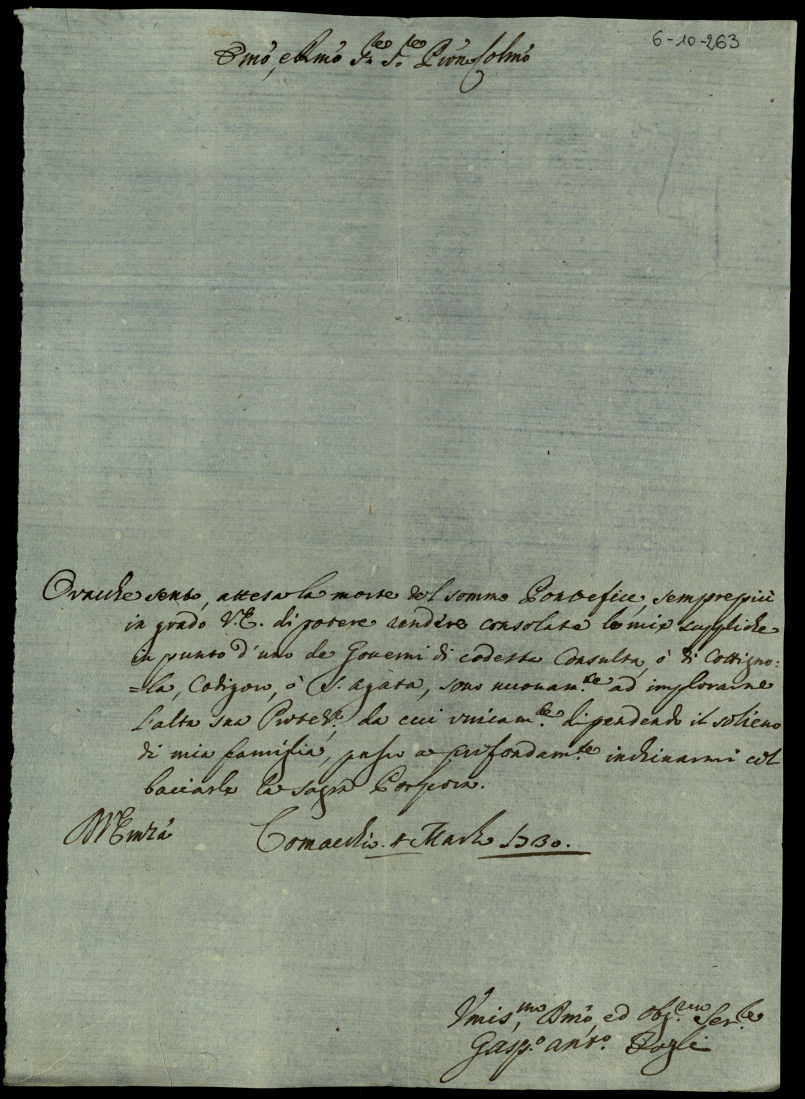 6-10-263
Emo, e Rmo Sr. Sr. Pron Colmo
Ora che sento, attesa la morte del sommo Pontefice, semprepiù
in grado V.E. di potere rendere consolate le mie suppliche
in punto d'uno de Governi di codesta Consulta, ò di Cottigno:
=la, Codigoro, ò S. Agata, sono nuovam.te ad implorarne
l'alta sua Protez.e, da cui unicam.te dipendendo il solievo
di mia famiglia, passo a profondam.te inchinarmi col
bacciarle la sagra Porpora.
D V Emza Comacchio. 4 Marzo 1730.
Umis.mo Dmo, ed Obg.mo Ser.re
Gasp.o Ant.o